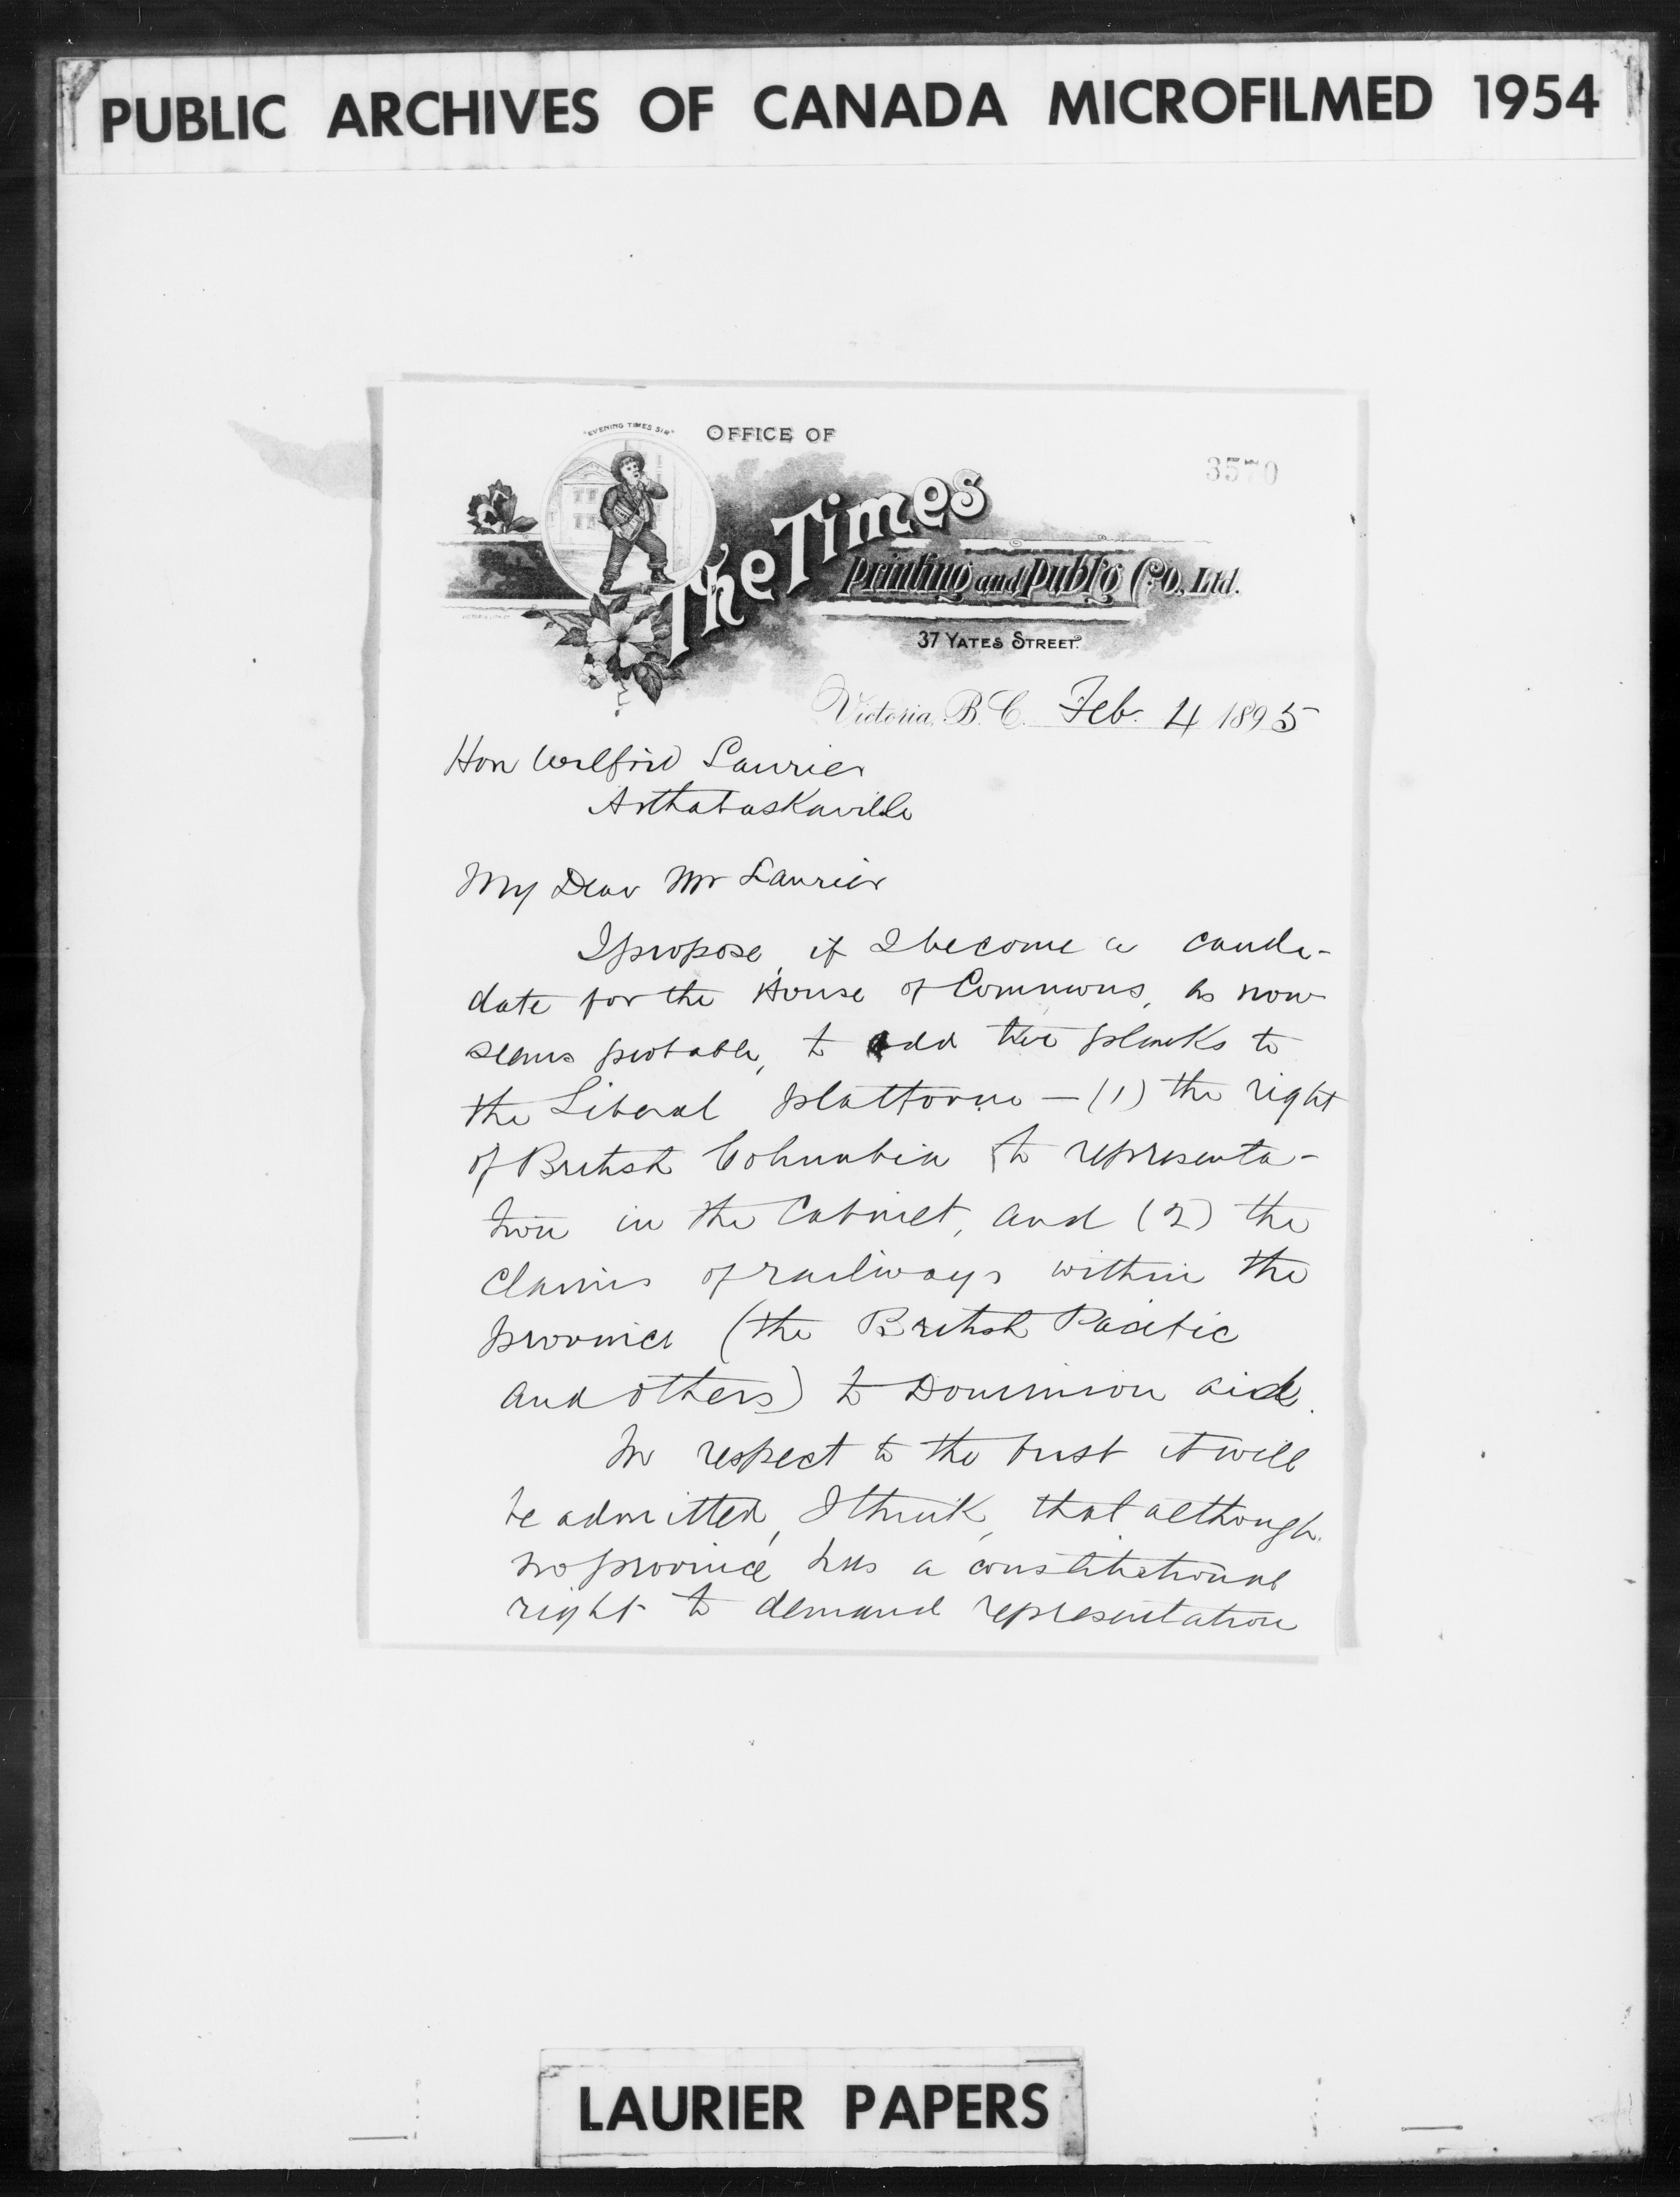 PUBLIC ARCHIVES OF CANADA MICROFILMED 1954
"EVENING TIMES SIR"
OFFICE OF
3570
The Times
Printing and Publ'g Co., Ltd.
37 YATES STREET.
Victoria, B.C. Feb. 4 1895
Hon Wilfrid Laurier
Arthabaskaville
My Dear Mr Laurier
I propose, if I become a candi-
date for the House of Commons, as now
seems probable, to add two planks to
the Liberal platform — (1) the right
of British Columbia to representa-
tion in the Cabinet, and (2) the
claims of railways within the
province (the British Pacific
and others) to Dominion aid.
In respect to the first it will
be admitted, I think, that although
no province has a constitutional
right to demand representation
LAURIER PAPERS